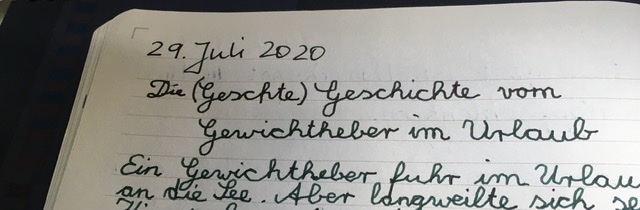 29. Juli 2020
Die (Geschte) Geschichte vom
Gewichtheber im Urlaub
Ein Gewichtheber fuhr im Urlau
an die See. Aber langweilte sich se